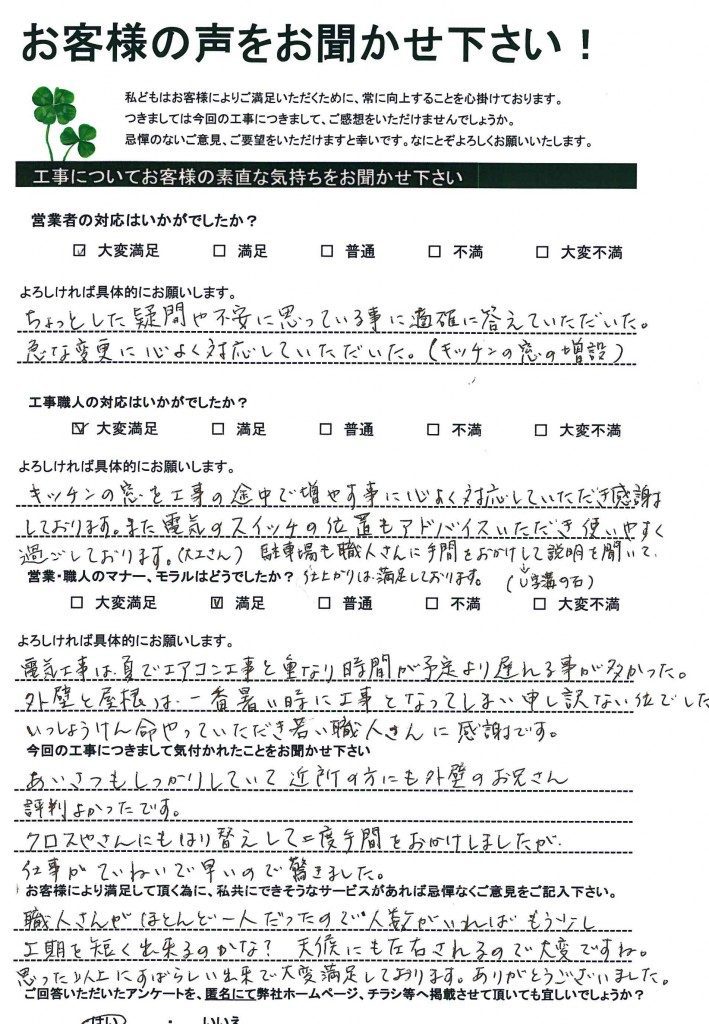 お客様の声をお聞かせ下さい！
私どもはお客様によりご満足いただくために、常に向上することを心掛けております。
つきましては今回の工事につきまして、ご感想をいただけませんでしょうか。
忌憚のないご意見、ご要望をいただけますと幸いです。なにとぞよろしくお願いいたします。
工事についてお客様の素直な気持ちをお聞かせ下さい
営業者の対応はいかがでしたか？
☑ 大変満足 □ 満足 □ 普通 □ 不満 □ 大変不満
よろしければ具体的にお願いします。
ちょっとした疑問や不安に思っている事に適確に答えていただいた。
急な変更に心よく対応していただいた。(キッチンの窓の増設)
工事職人の対応はいかがでしたか？
☑ 大変満足 □ 満足 □ 普通 □ 不満 □ 大変不満
よろしければ具体的にお願いします。
キッチンの窓を工事の途中で増やす事に心よく対応していただき感謝
しております。また電気のスイッチの位置もアドバイスいただき使いやすく
過ごしております。(大工さん) 駐車場も職人さんに手間をおかけして説明を聞いて、
営業・職人のマナー、モラルはどうでしたか？ 仕上がりは満足しております。 (U字溝の石)
□ 大変満足 ☑ 満足 □ 普通 □ 不満 □ 大変不満
よろしければ具体的にお願いします。
電気工事は夏でエアコン工事と重なり時間が予定より遅れる事が多かった。
外壁と屋根は、一番暑い時に工事となってしまい申し訳ない位でした
いっしょうけん命やっていただき若い職人さんに感謝です。
今回の工事につきまして気付かれたことをお聞かせ下さい
あいさつもしっかりしていて近所の方にも外壁のお兄さん
評判よかったです。
クロスやさんにもはり替えして二度手間をおかけしましたが、
仕事がていねいで早いので驚きました。
お客様により満足して頂く為に、私共にできそうなサービスがあれば忌憚なくご意見をご記入下さい。
職人さんがほとんど一人だったので人数がいればもう少し
工期を短く出来るのかな？ 天候にも左右されるので大変ですね。
思った以上にすばらしい出来で大変満足しております。ありがとうございました。
ご回答いただいたアンケートを、匿名にて弊社ホームページ、チラシ等へ掲載させて頂いても宜しいでしょうか？
はい ・ いいえ